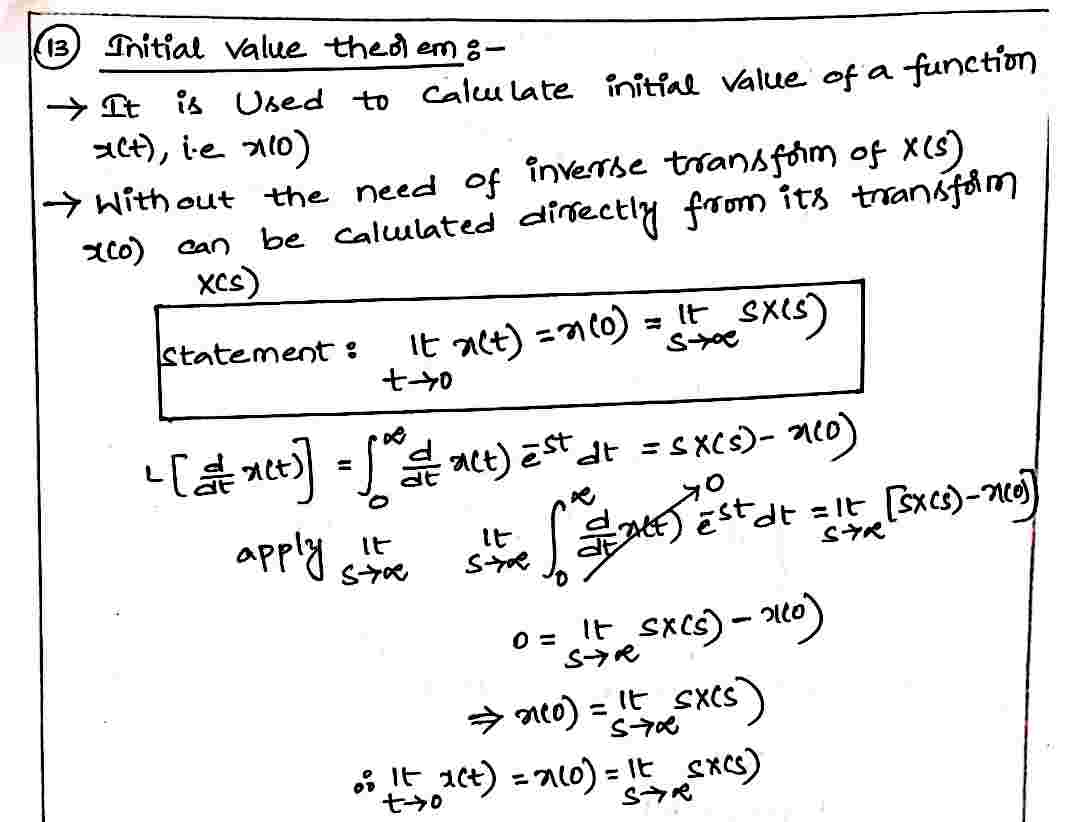 (13) Initial Value theorem :-
→ It is Used to Calculate initial Value of a function
x(t), i.e x(0)
→ Without the need of inverse transform of X(s)
x(0) can be Calculated directly from its transform
X(s)
Statement : lt x(t) = x(0) = lt SX(S)
t→0 S→∞
L[d/dt x(t)] = ∫₀^∞ d/dt x(t) e^-st dt = SX(S) - x(0)
apply lt S→∞ lt S→∞ ∫₀^∞ d/dt x(t) e^-st dt →0 = lt S→∞ [SX(S) - x(0)]
0 = lt S→∞ SX(S) - x(0)
⇒ x(0) = lt S→∞ SX(S)
∴ lt t→0 x(t) = x(0) = lt S→∞ SX(S)